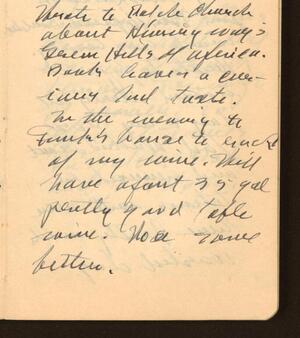 Wrote to Ralph Church
about Hemingway's
Green Hills of Africa.
Book leaves a ever-
 bad taste.
In the evening to
 house to
of my wine. Will
have about 35 gal
pretty good table
wine. Hoe some
better.